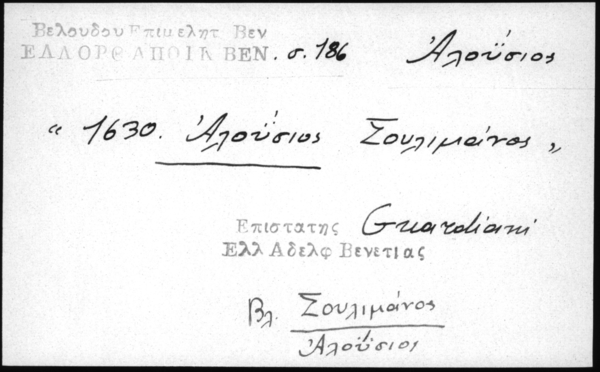 Βελουδου Επιμελητ Βεν
ΕΛΛΟΡΘ ΑΠΟΙΚ ΒΕΝ. σ. 186 Ἀλοΰσιος
“ 1630. Ἀλοΰσιος Σουλιμάνος „
Επιστατης Guardiani
Ελλ Αδελφ Βενετιας
Βλ. Σουλιμάνος
Ἀλοΰσιος